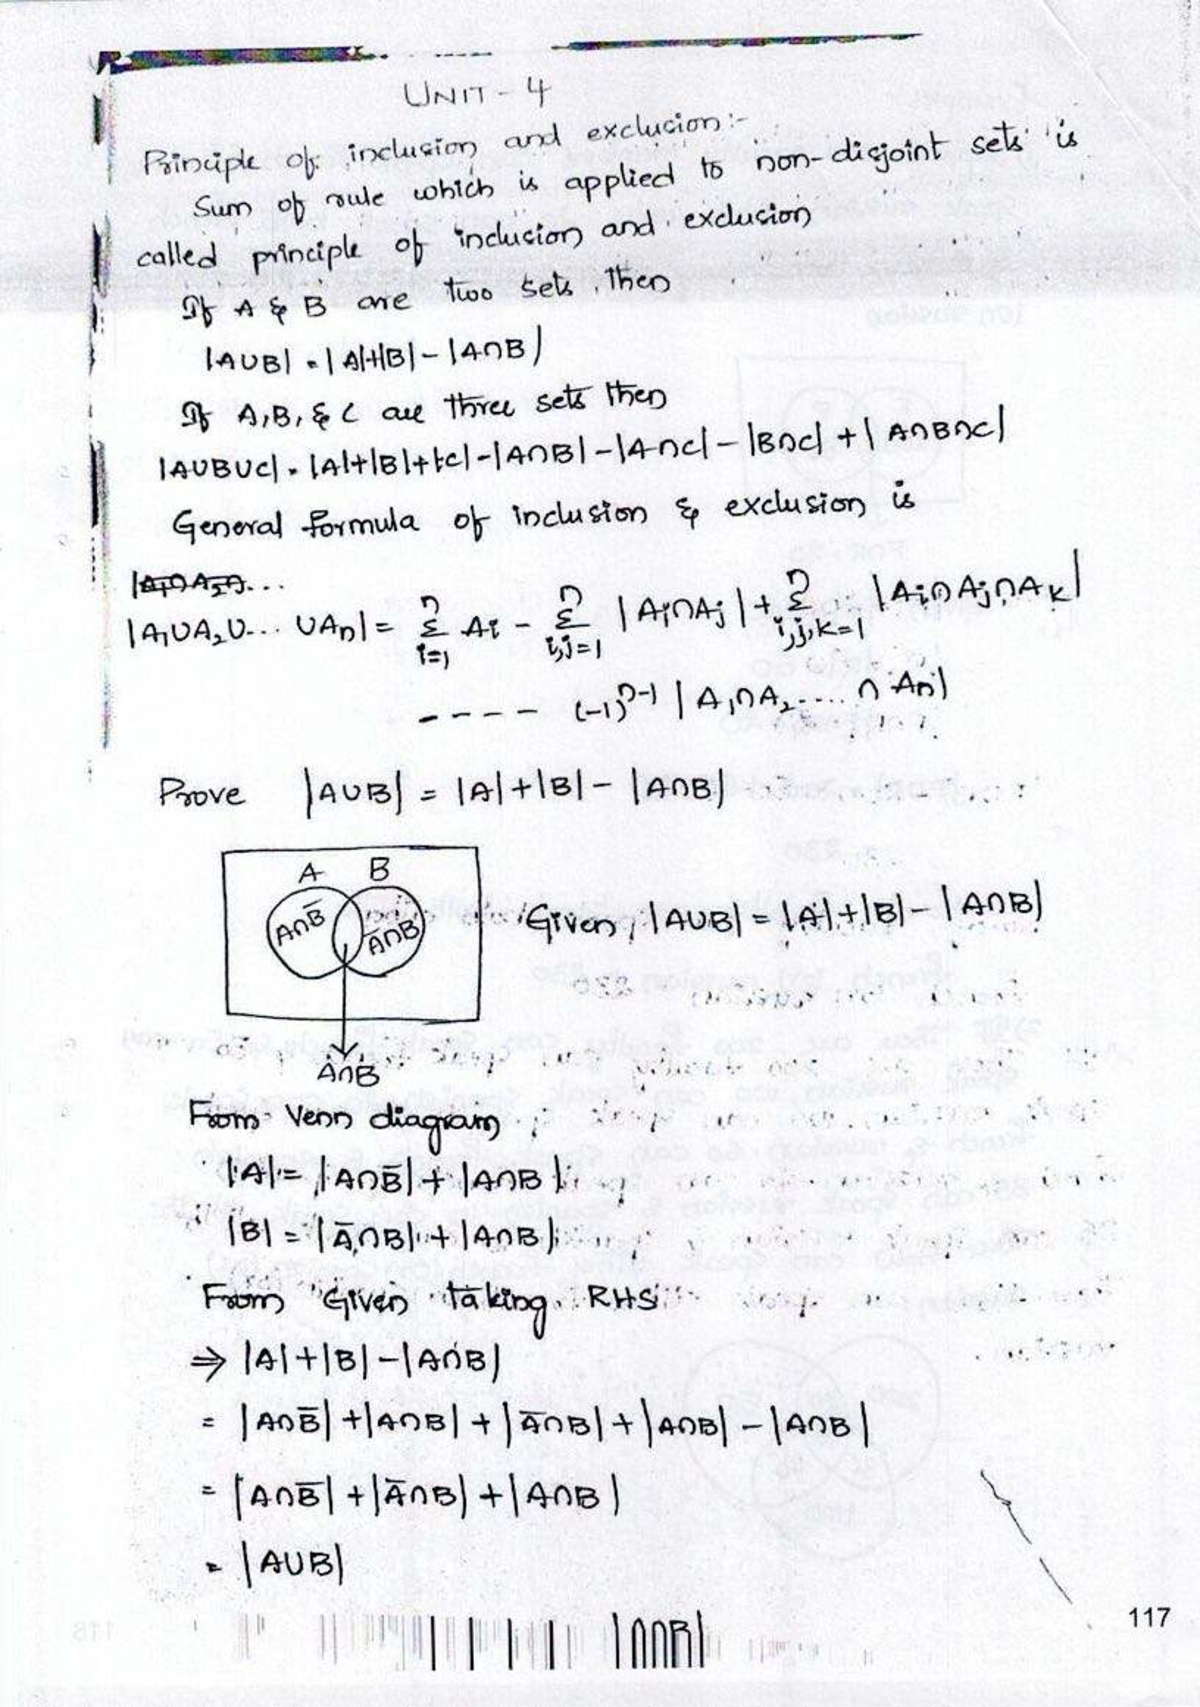 UNIT - 4
Principle of inclusion and exclusion:-
Sum of rule which is applied to non-disjoint sets is
called principle of inclusion and exclusion
If A & B are two sets, then
|A∪B| = |A|+|B| - |A∩B|
If A,B, & C are three sets then
|A∪B∪C| = |A|+|B|+|C| - |A∩B| - |A∩C| - |B∩C| + |A∩B∩C|
General formula of inclusion & exclusion is
|A₁∩A₂∩...
|A₁∪A₂∪... ∪Aₙ| = n Σ i=1 Ai - n Σ i,j=1 |Ai∩Aj| + n Σ i,j,k=1 |Ai∩Aj∩Ak|
---- (-1)ⁿ⁻¹ |A₁∩A₂.... ∩ Aₙ|
Prove |A∪B| = |A|+|B| - |A∩B|
A B
A∩B̅ A̅∩B
Given, |A∪B| = |A|+|B| - |A∩B|
A∩B
From Venn diagram
|A| = |A∩B̅| + |A∩B|
|B| = |A̅∩B| + |A∩B|
From Given taking RHS
⇒ |A|+|B| - |A∩B|
= |A∩B̅| + |A∩B| + |A̅∩B| + |A∩B| - |A∩B|
= |A∩B̅| + |A̅∩B| + |A∩B|
= |A∪B|
117